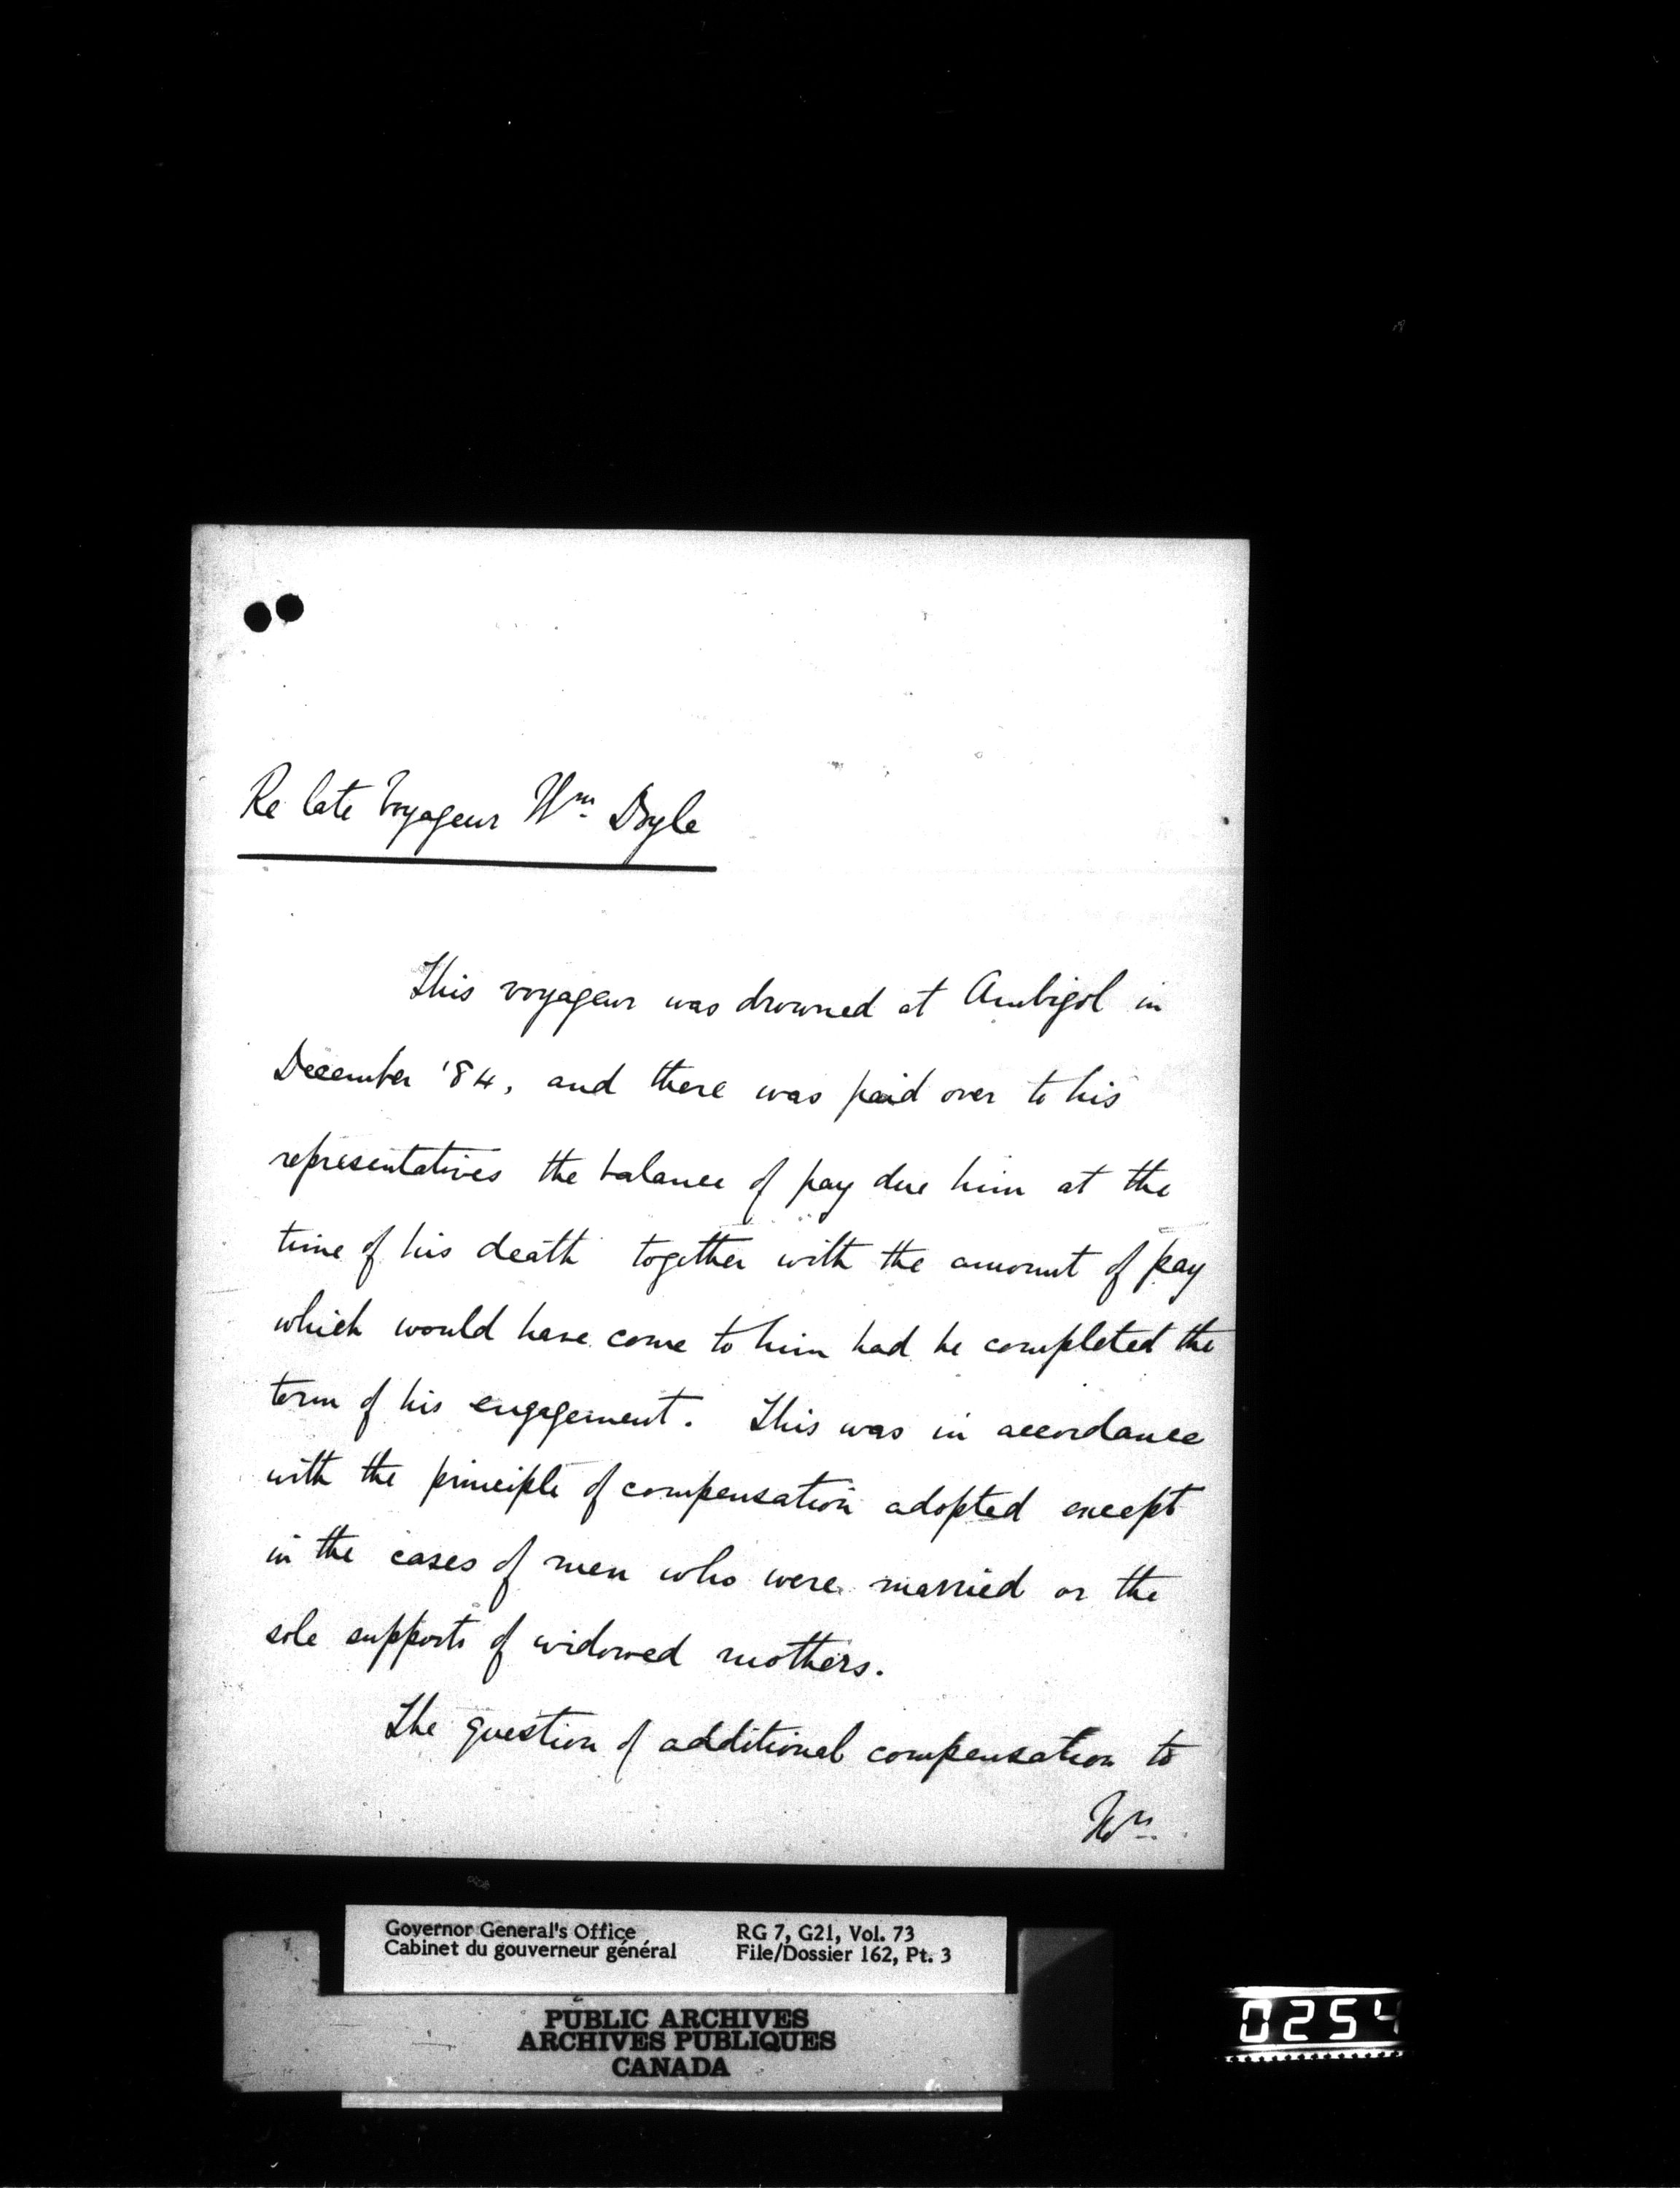 Re late Voyageur Wm. Doyle
This voyageur was drowned at Ambigol in
December '84, and there was paid over to his
representatives the balance of pay due him at the
time of his death together with the amount of pay
which would have come to him had he completed the
term of his engagement. This was in accordance
with the principle of compensation adopted except
in the cases of men who were married or the
sole supports of widowed mothers.
The question of additional compensation to
Wm.
Governor General's Office RG 7, G21, Vol. 73
Cabinet du gouverneur général File/Dossier 162, Pt. 3
PUBLIC ARCHIVES
ARCHIVES PUBLIQUES
CANADA
0254